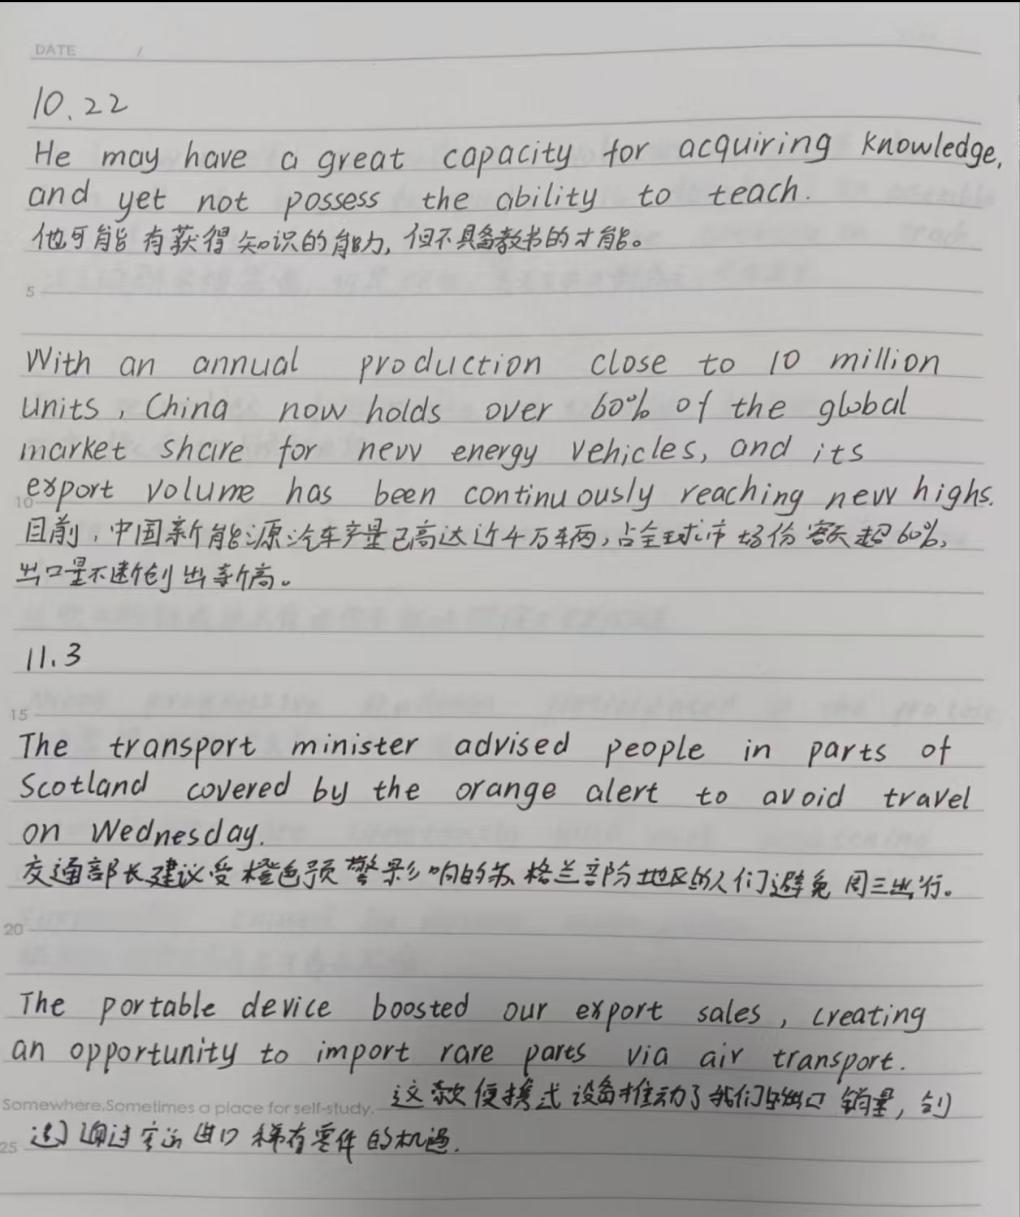 DATE /
10.22
He may have a great capacity for acquiring knowledge,
and yet not possess the ability to teach.
他可能有获得知识的能力,但不具备教书的才能。
5
With an annual production close to 10 million
units, China now holds over 60% of the global
market share for new energy vehicles, and its
export volume has been continuously reaching new highs.
10
目前,中国新能源汽车产量已高达近千万辆,占全球市场份额超60%,
出口量不断创出新高。
11.3
15
The transport minister advised people in parts of
Scotland covered by the orange alert to avoid travel
on Wednesday.
交通部长建议受橙色预警影响的苏格兰部防地区的人们避免周三出行。
20
The portable device boosted our export sales, creating
an opportunity to import rare parts via air transport.
这款便携式设备推动了我们的出口销量,创
Somewhere.Sometimes a place for self-study.
造了通过空运进口稀有零件的机遇.
25